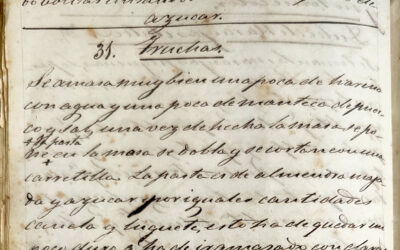 azucar.
31. Truchas.
Se amasa muy bien una poca de harina
con agua y una poca de manteca de puer-
co y sal, una vez de hecha la masa se po-
+ la pasta
ne en la masa se dobla y se corta con una
carretilla. La pasta es de almendra maja-
da y azucar por iguales cantidades
canela y luquete, esto ha de quedar un
poco duro